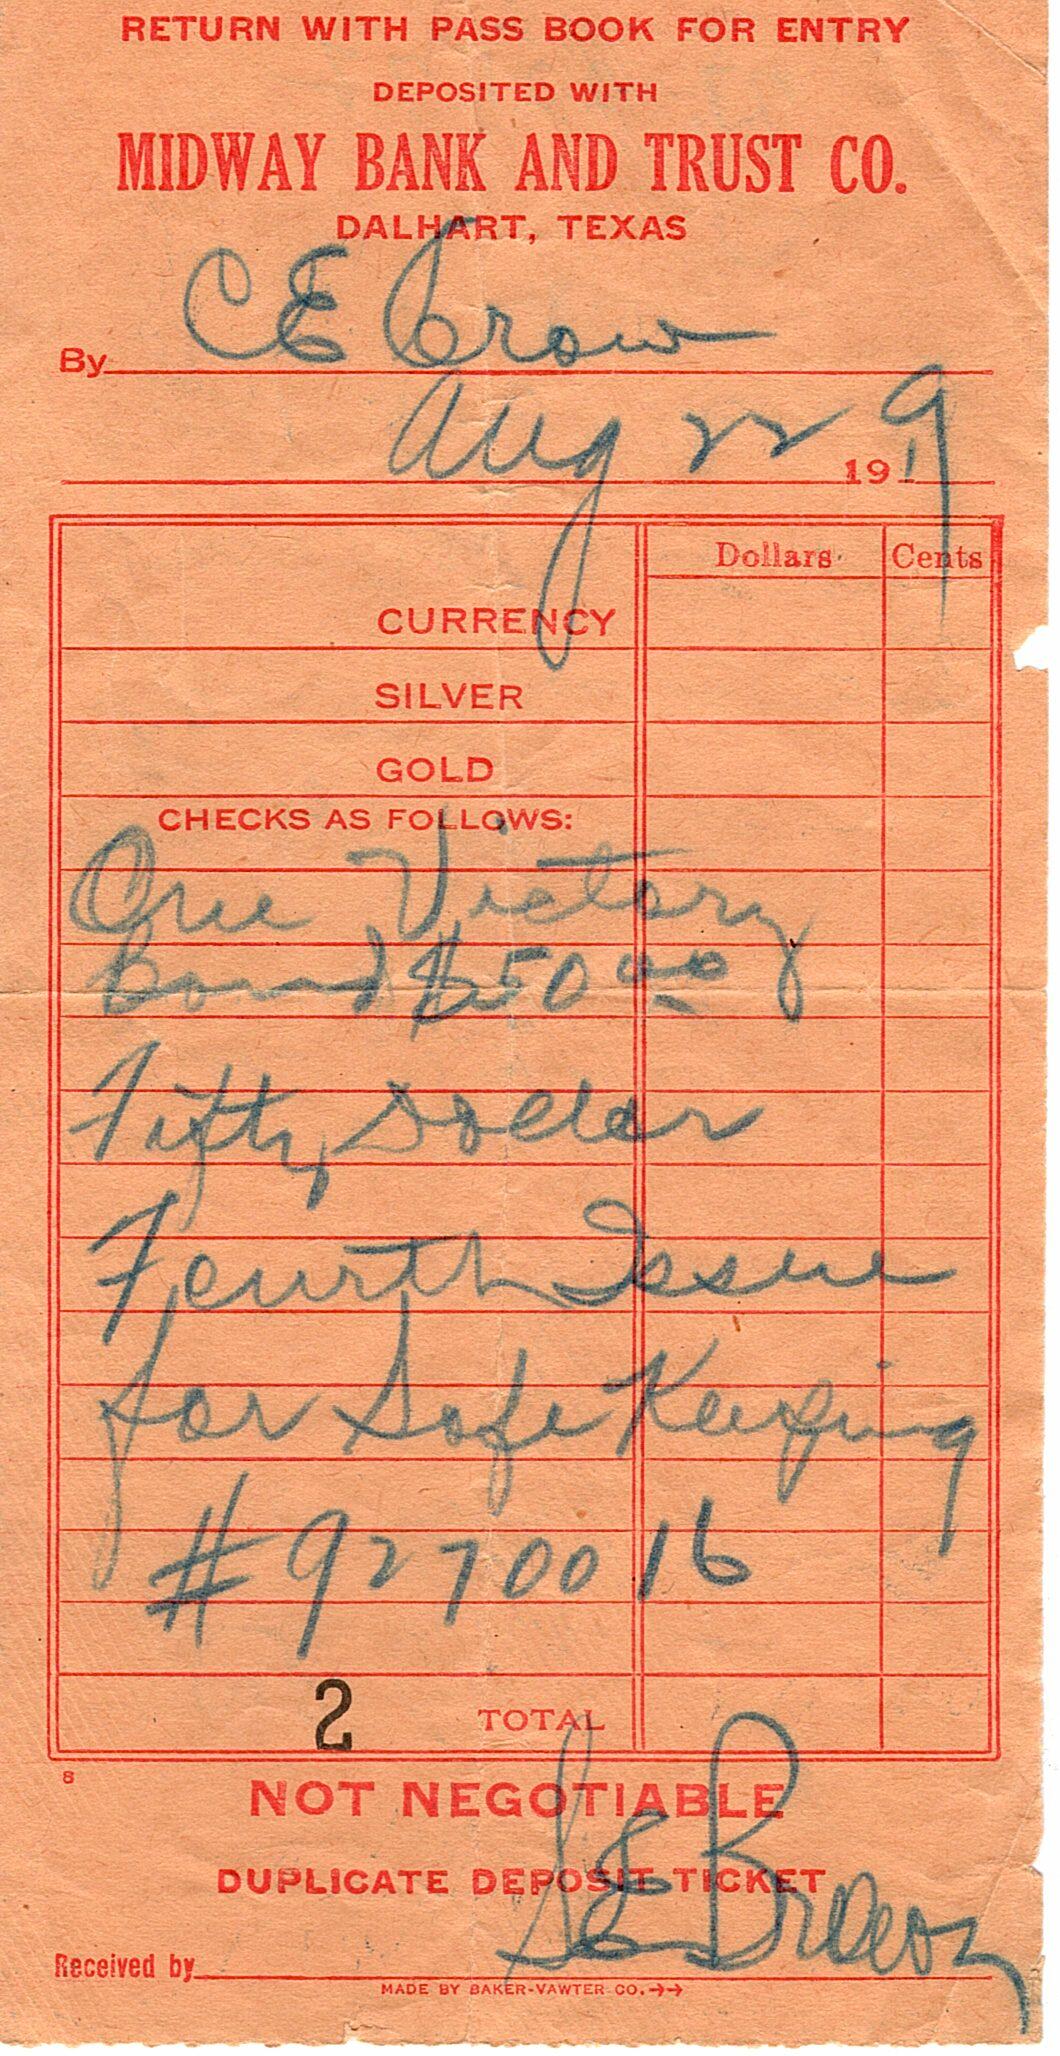 RETURN WITH PASS BOOK FOR ENTRY
DEPOSITED WITH
MIDWAY BANK AND TRUST CO.
DALHART, TEXAS
By C E Crow
Aug 22 1919
Dollars Cents
CURRENCY
SILVER
GOLD
CHECKS AS FOLLOWS:
One Victory
Bond $50 00
Fifty Dollar
Fourth Issue
for Safe Keeping
# 9270016
2 TOTAL
8
NOT NEGOTIABLE
DUPLICATE DEPOSIT TICKET
Received by
MADE BY BAKER-VAWTER CO.